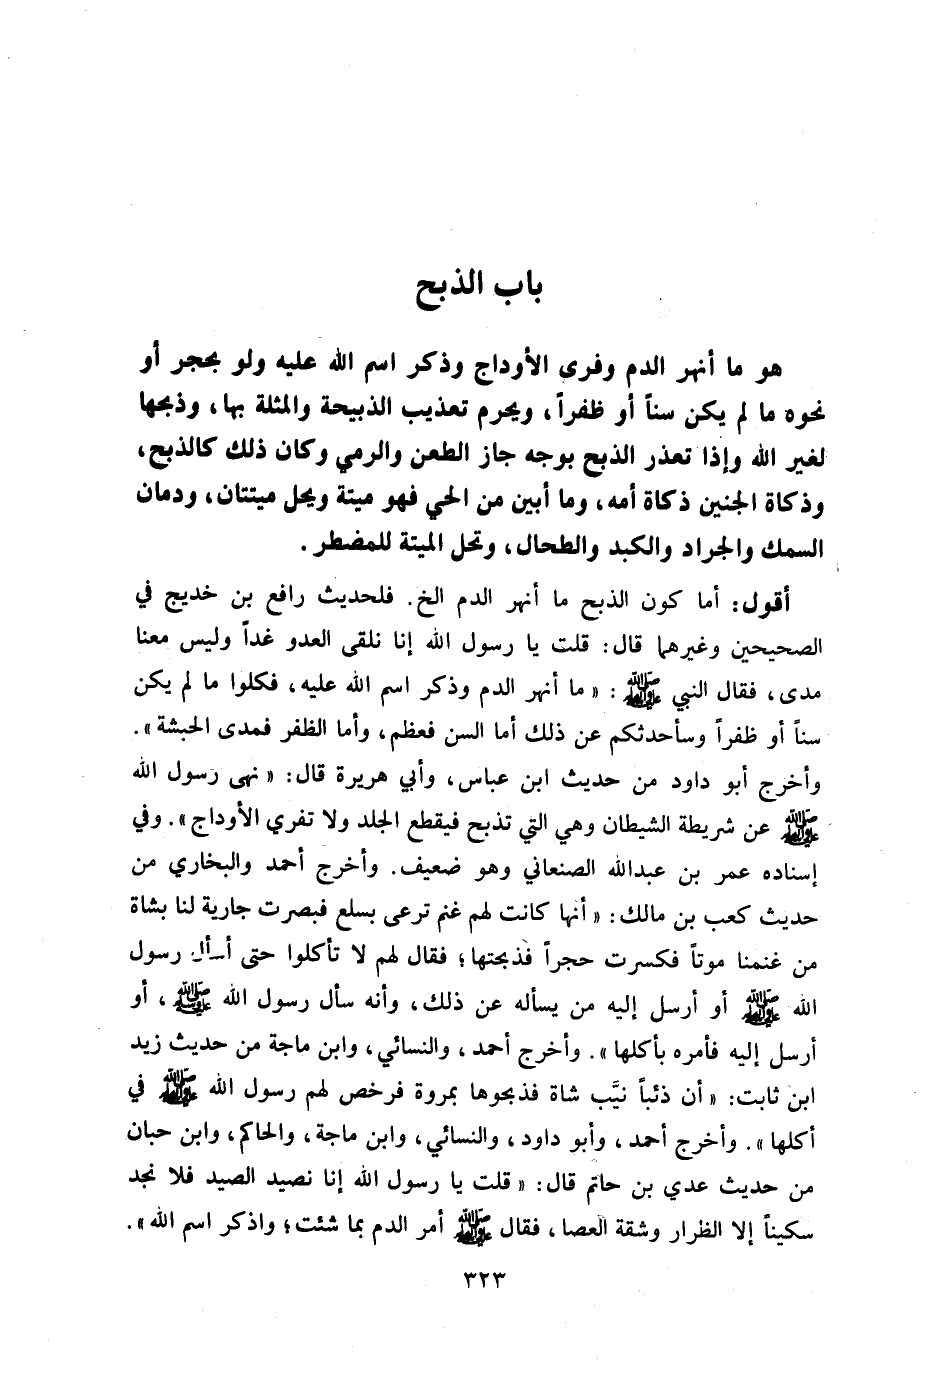 باب الذبح
هو ما أنهر الدم وفرى الأوداج وذكر اسم الله عليه ولو بحجر أو
نحوه ما لم يكن سناً أو ظفراً، ويحرم تعذيب الذبيحة والمثلة بها، وذبحها
لغير الله وإذا تعذر الذبح بوجه جاز الطعن والرمي وكان ذلك كالذبح،
وذكاة الجنين ذكاة أمه، وما أبين من الحي فهو ميتة ويحل ميتتان، ودمان
السمك والجراد والكبد والطحال، وتحل الميتة للمضطر.
أقول: أما كون الذبح ما أنهر الدم الخ. فلحديث رافع بن خديج في
الصحيحين وغيرهما قال: قلت يا رسول الله إنا نلقى العدو غداً وليس معنا
مدى، فقال النبي ﷺ: «ما أنهر الدم وذكر اسم الله عليه، فكلوا ما لم يكن
سناً أو ظفراً وسأحدثكم عن ذلك أما السن فعظم، وأما الظفر فمدى الحبشة».
وأخرج أبو داود من حديث ابن عباس، وأبي هريرة قال: «نهى رسول الله
ﷺ عن شريطة الشيطان وهي التي تذبح فيقطع الجلد ولا تفري الأوداج». وفي
إسناده عمر بن عبدالله الصنعاني وهو ضعيف. وأخرج أحمد والبخاري من
حديث كعب بن مالك: «أنها كانت لهم غنم ترعى بسلع فبصرت جارية لنا بشاة
من غنمنا موتاً فكسرت حجراً فذبحتها؛ فقال لهم لا تأكلوا حتى أسأل رسول
الله ﷺ أو أرسل إليه من يسأله عن ذلك، وأنه سأل رسول الله ﷺ، أو
أرسل إليه فأمره بأكلها». وأخرج أحمد، والنسائي، وابن ماجة من حديث زيد
ابن ثابت: «أن ذئباً نيَّب شاة فذبحوها بمروة فرخص لهم رسول الله ﷺ في
أكلها». وأخرج أحمد، وأبو داود، والنسائي، وابن ماجة، والحاكم، وابن حبان
من حديث عدي بن حاتم قال: «قلت يا رسول الله إنا نصيد الصيد فلا نجد
سكيناً إلا الظرار وشقة العصا، فقال ﷺ أمر الدم بما شئت؛ واذكر اسم الله».
٣٢٣